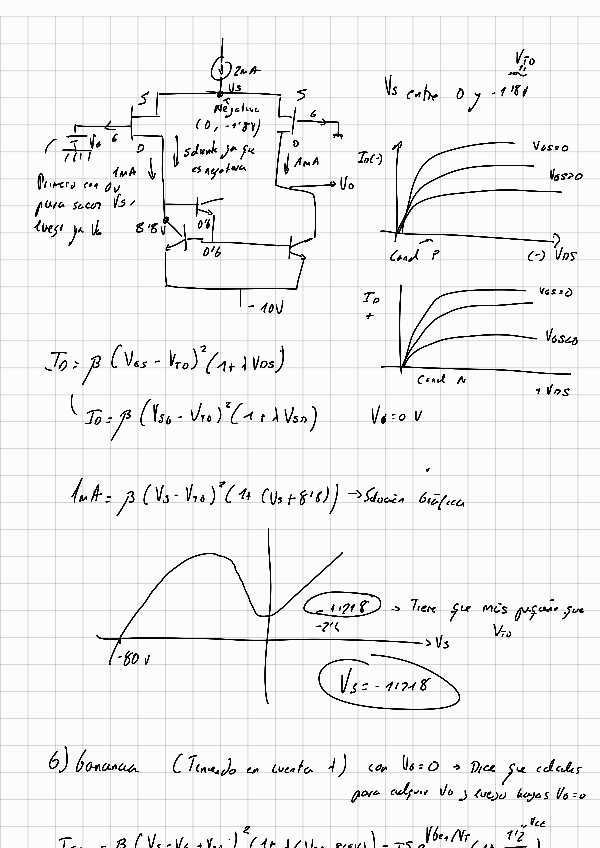 2mA
Vs
S
S
Negativa
(0, -1'8V)
G
G
V6
D
D
Solución ya que
es negativa
1mA
1mA
Primero con 0V
para sacar Vs,
luego ya V6
Vo
8'8V
0'6
0'6
-10V
VTO
Vs entre 0 y -1'8V
ID(-)
VGS=0
VGS>0
Canal P
(-) VDS
ID
+
VGS=0
VGS<0
Canal N
+ VDS
ID = β (VGS - VTO)² (1+ λ VDS)
ID = β (VSG - VTO)² (1+ λ VSD)
VG=0 V
1mA = β (Vs - VTO)² (1+ (Vs + 8'8)) → Solución Gráfica
-1'1218 → Tiene que más pequeño que
VTO
-2'4
→ Vs
-80 V
Vs = -1'1218
6) Ganancia (Teniendo en cuenta λ) con VG=0 → Dice que calcules
para cualquier VG y luego hagas VG=0